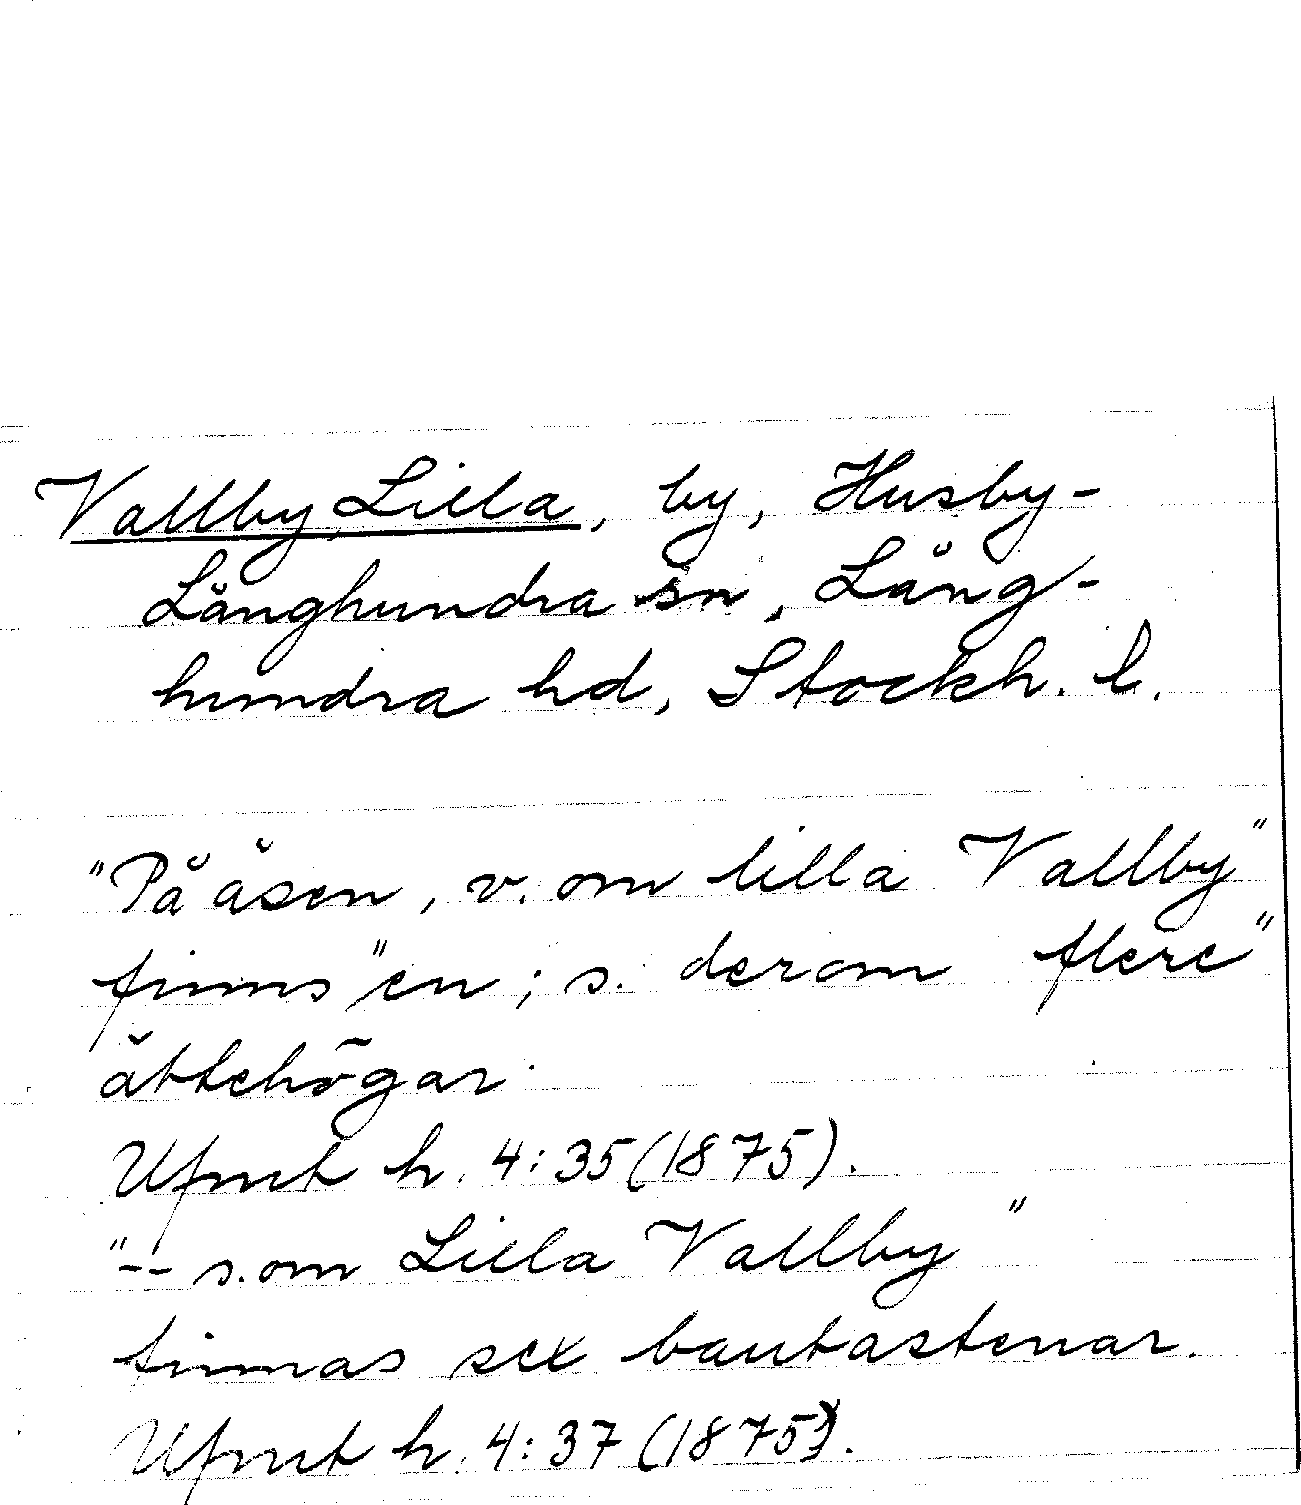 Vallby, Lilla, by, Husby-
Långhundra sn, Lång-
hundra hd, Stockh. l.
"På åsen, v. om lilla Vallby"
finns "en; s. derom flere"
ättehögar.
Ufmt h. 4:35 (1875).
"-- s. om Lilla Vallby"
finnas sex bautastenar.
Ufmt h. 4:37 (1875).